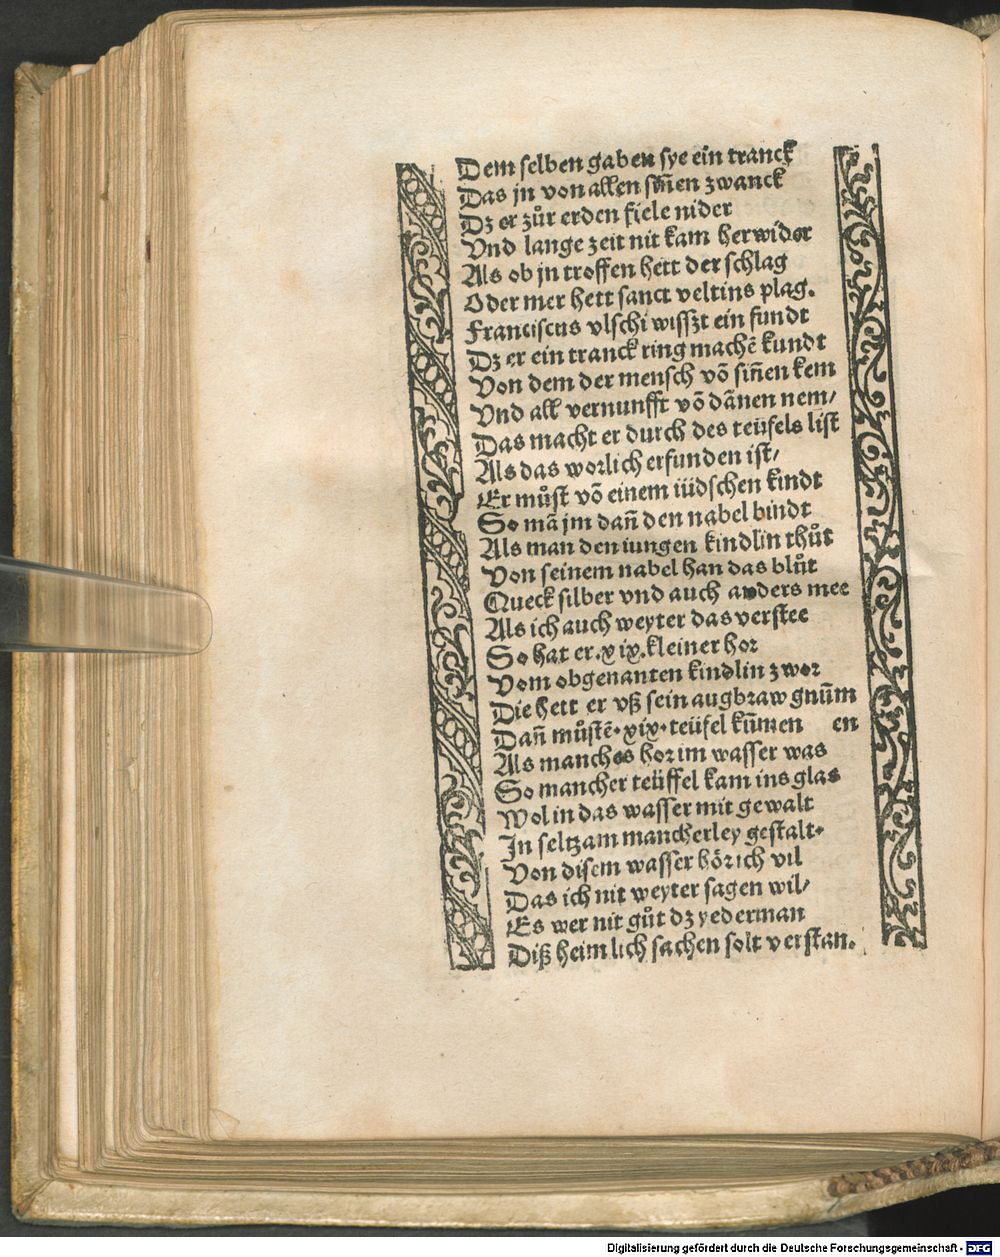 Dem selben gaben sye ein tranck
Das jn von allen siñen zwanck
Dz er zůr erden fiele nider
Vnd lange zeit nit kam herwider
Als ob jn troffen hett der schlag
Oder mer hett sanct veltins plag.
Franciscus vlschi wisszt ein fundt
Dz er ein tranck ring machẽ kundt
Von dem der mensch võ siñen kem
Vnd all vernunfft võ dãnen nem/
Das macht er durch des teüfels list
Als das worlich erfunden ist/
Er můst võ einem iüdschen kindt
So mã jm dañ den nabel bindt
Als man den iungen kindlin thůt
Von seinem nabel han das blůt
Queck silber vnd auch anders mee
Als ich auch weyter das verstee
So hat er .xix. kleiner hor
Vom obgenanten kindlin zwor
Die hett er vß sein augbraw gnũm
Dañ můstẽ .xix. teüfel kũmen en
Als manches hor im wasser was
So mancher teüffel kam ins glas
Wol in das wasser mit gewalt
In seltzam mancherley gestalt.
Von disem wasser hör ich vil
Das ich nit weyter sagen wil/
Es wer nit gůt dz yederman
Diß heimlich sachen solt verstan.
Digitalisierung gefördert durch die Deutsche Forschungsgemeinschaft - DFG